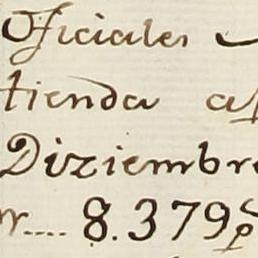 Oficiales
tienda
Diziembre
8.379